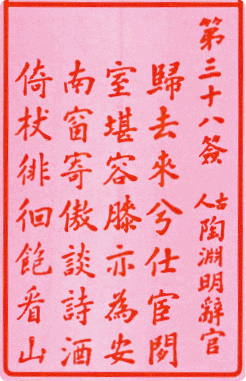 第三十八簽 古人 陶淵明辭官
歸去來兮仕宦閒
室堪容膝亦為安
南窗寄傲談詩酒
倚杖徘徊飽看山